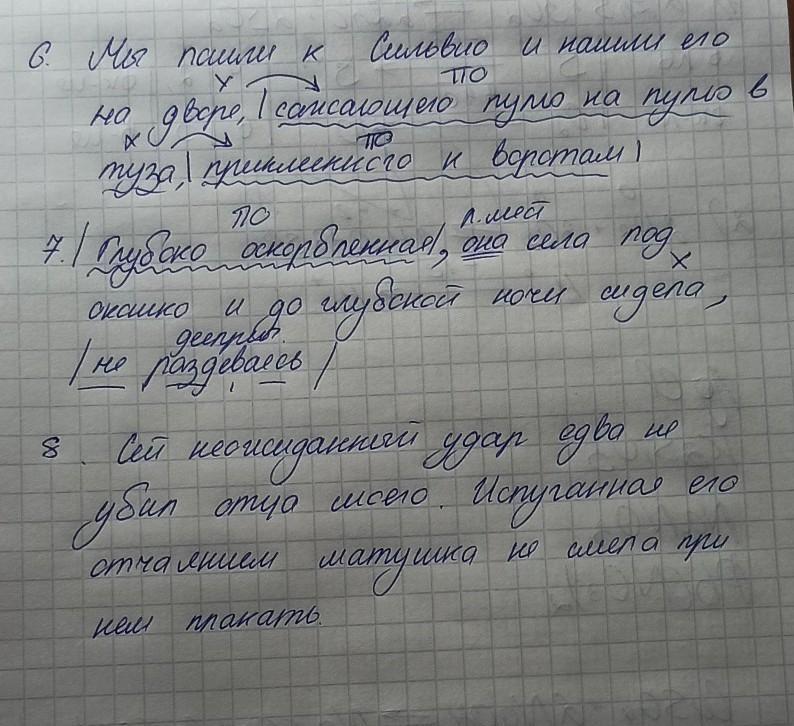 6. Мы пошли к Сильвио и нашли его
х ПО
на дворе, | сажающего пулю на пулю в
х ПО
туза, | приклеенного к воротам |
ПО л.мест
7. | Глубоко оскорбленная |, она села под
х
окошко и до глубокой ночи сидела,
дееприч.
| не раздеваясь |
8. Сей неожиданный удар едва не
убил отца моего. Испуганная его
отчаянием матушка не смела при
нем плакать.